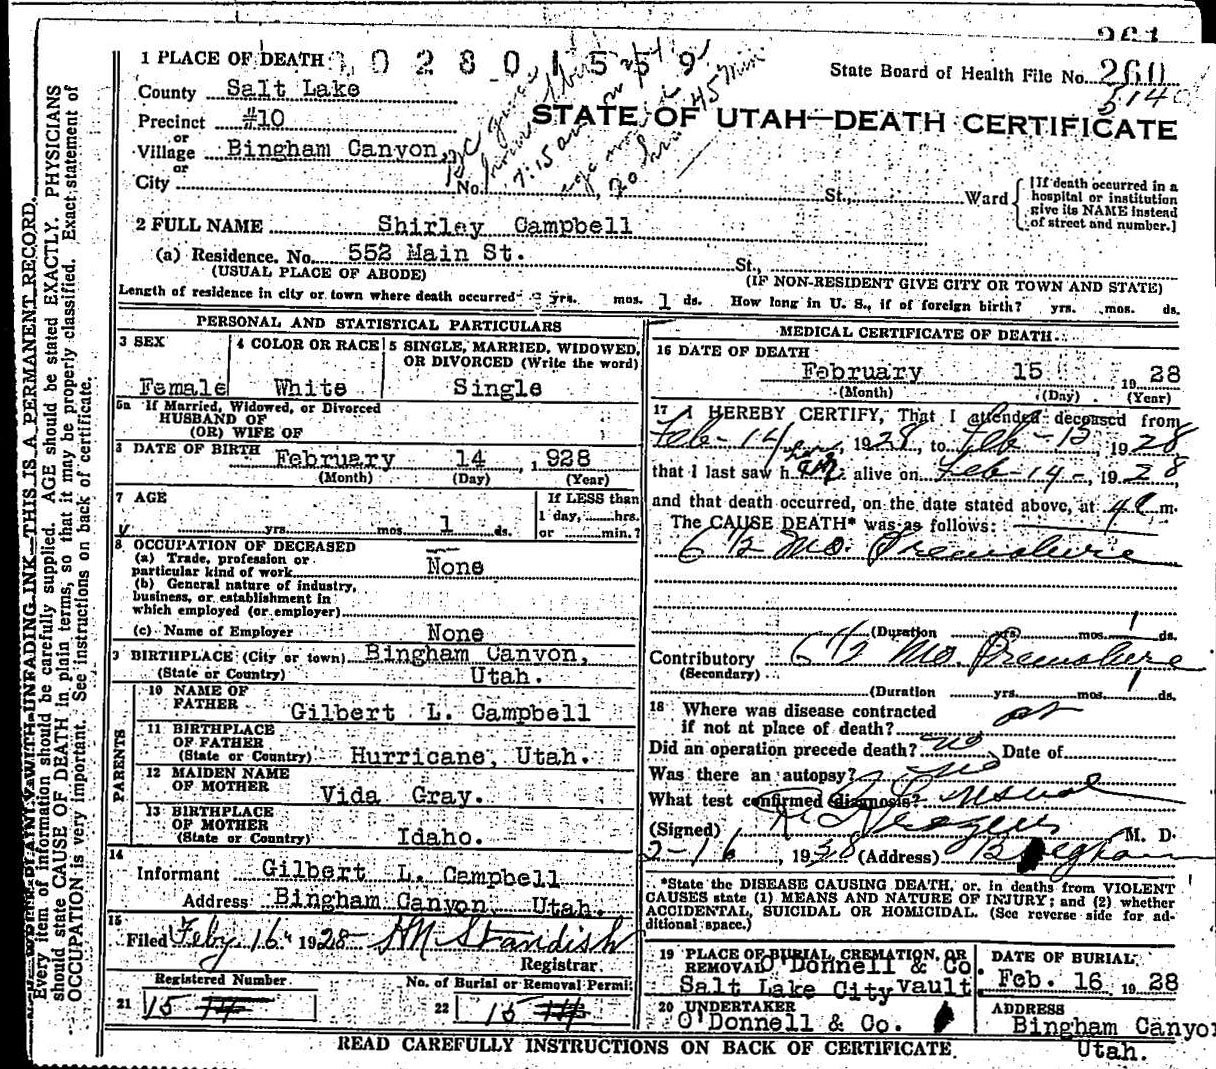 261
1 PLACE OF DEATH 1 0 2 8 0 1 5 5 9
State Board of Health File No. 260
County Salt Lake
STATE OF UTAH—DEATH CERTIFICATE
Precinct #10
or
Village Bingham Canyon,
or
City No. St., Ward
[If death occurred in a
hospital or institution
give its NAME instead
of street and number.]
BC gives
7:15 am on 2/14
20 hrs 45 min
2 FULL NAME Shirley Campbell
(a) Residence. No. 552 Main St. St.,
(USUAL PLACE OF ABODE) (IF NON-RESIDENT GIVE CITY OR TOWN AND STATE)
Length of residence in city or town where death occurred yrs. mos. 1 ds. How long in U. S., if of foreign birth? yrs. mos. ds.
PERSONAL AND STATISTICAL PARTICULARS
3 SEX
Female
4 COLOR OR RACE
White
5 SINGLE, MARRIED, WIDOWED,
OR DIVORCED (Write the word)
Single
5a If Married, Widowed, or Divorced
HUSBAND OF
(OR) WIFE OF
DATE OF BIRTH February 14 , 1928
(Month) (Day) (Year)
7 AGE
yrs. mos. 1 ds.
If LESS than
1 day, hrs.
or min.?
8 OCCUPATION OF DECEASED
(a) Trade, profession or
particular kind of work None
(b) General nature of industry,
business, or establishment in
which employed (or employer)
(c) Name of Employer None
9 BIRTHPLACE (City or town) Bingham Canyon,
(State or Country) Utah.
PARENTS
10 NAME OF
FATHER Gilbert L. Campbell
11 BIRTHPLACE
OF FATHER
(State or Country) Hurricane, Utah.
12 MAIDEN NAME
OF MOTHER Vida Gray.
13 BIRTHPLACE
OF MOTHER
(State or Country) Idaho.
14
Informant Gilbert L. Campbell
Address Bingham Canyon Utah.
15
Filed Feby 16 1928 HN Standish
Registrar.
Registered Number No. of Burial or Removal Permit
21 15 22 15
MEDICAL CERTIFICATE OF DEATH
16 DATE OF DEATH
February 15 1928
(Month) (Day) (Year)
17 I HEREBY CERTIFY, That I attended deceased from
Feb - 14, 1928, to Feb - 15 1928
that I last saw her alive on Feb - 14 -, 1928,
and that death occurred, on the date stated above, at 4 a m.
The CAUSE DEATH* was as follows:
6 1/2 Mo. Premature
(Duration yrs. mos. 1 ds.
Contributory 6 1/2 Mo. Premature
(Secondary)
(Duration yrs. mos. 1 ds.
18 Where was disease contracted
if not at place of death?
Did an operation precede death? no Date of
Was there an autopsy? no
What test confirmed diagnosis?
(Signed) M. D.
2-16, 1928 (Address) Bingham
*State the DISEASE CAUSING DEATH, or in deaths from VIOLENT
CAUSES state (1) MEANS AND NATURE OF INJURY; and (2) whether
ACCIDENTAL, SUICIDAL OR HOMICIDAL. (See reverse side for ad-
ditional space.)
19 PLACE OF BURIAL, CREMATION, OR
REMOVAL O'Donnell & Co.
Salt Lake City Vault
DATE OF BURIAL
Feb. 16 1928
20 UNDERTAKER
O'Donnell & Co.
ADDRESS
Bingham Canyon
Utah.
READ CAREFULLY INSTRUCTIONS ON BACK OF CERTIFICATE.
WRITE PLAINLY WITH UNFADING INK—THIS IS A PERMANENT RECORD.
Every item of information should be carefully supplied. AGE should be stated EXACTLY. PHYSICIANS
should state CAUSE OF DEATH in plain terms, so that it may be properly classified. Exact statement of
OCCUPATION is very important. See instructions on back of certificate.